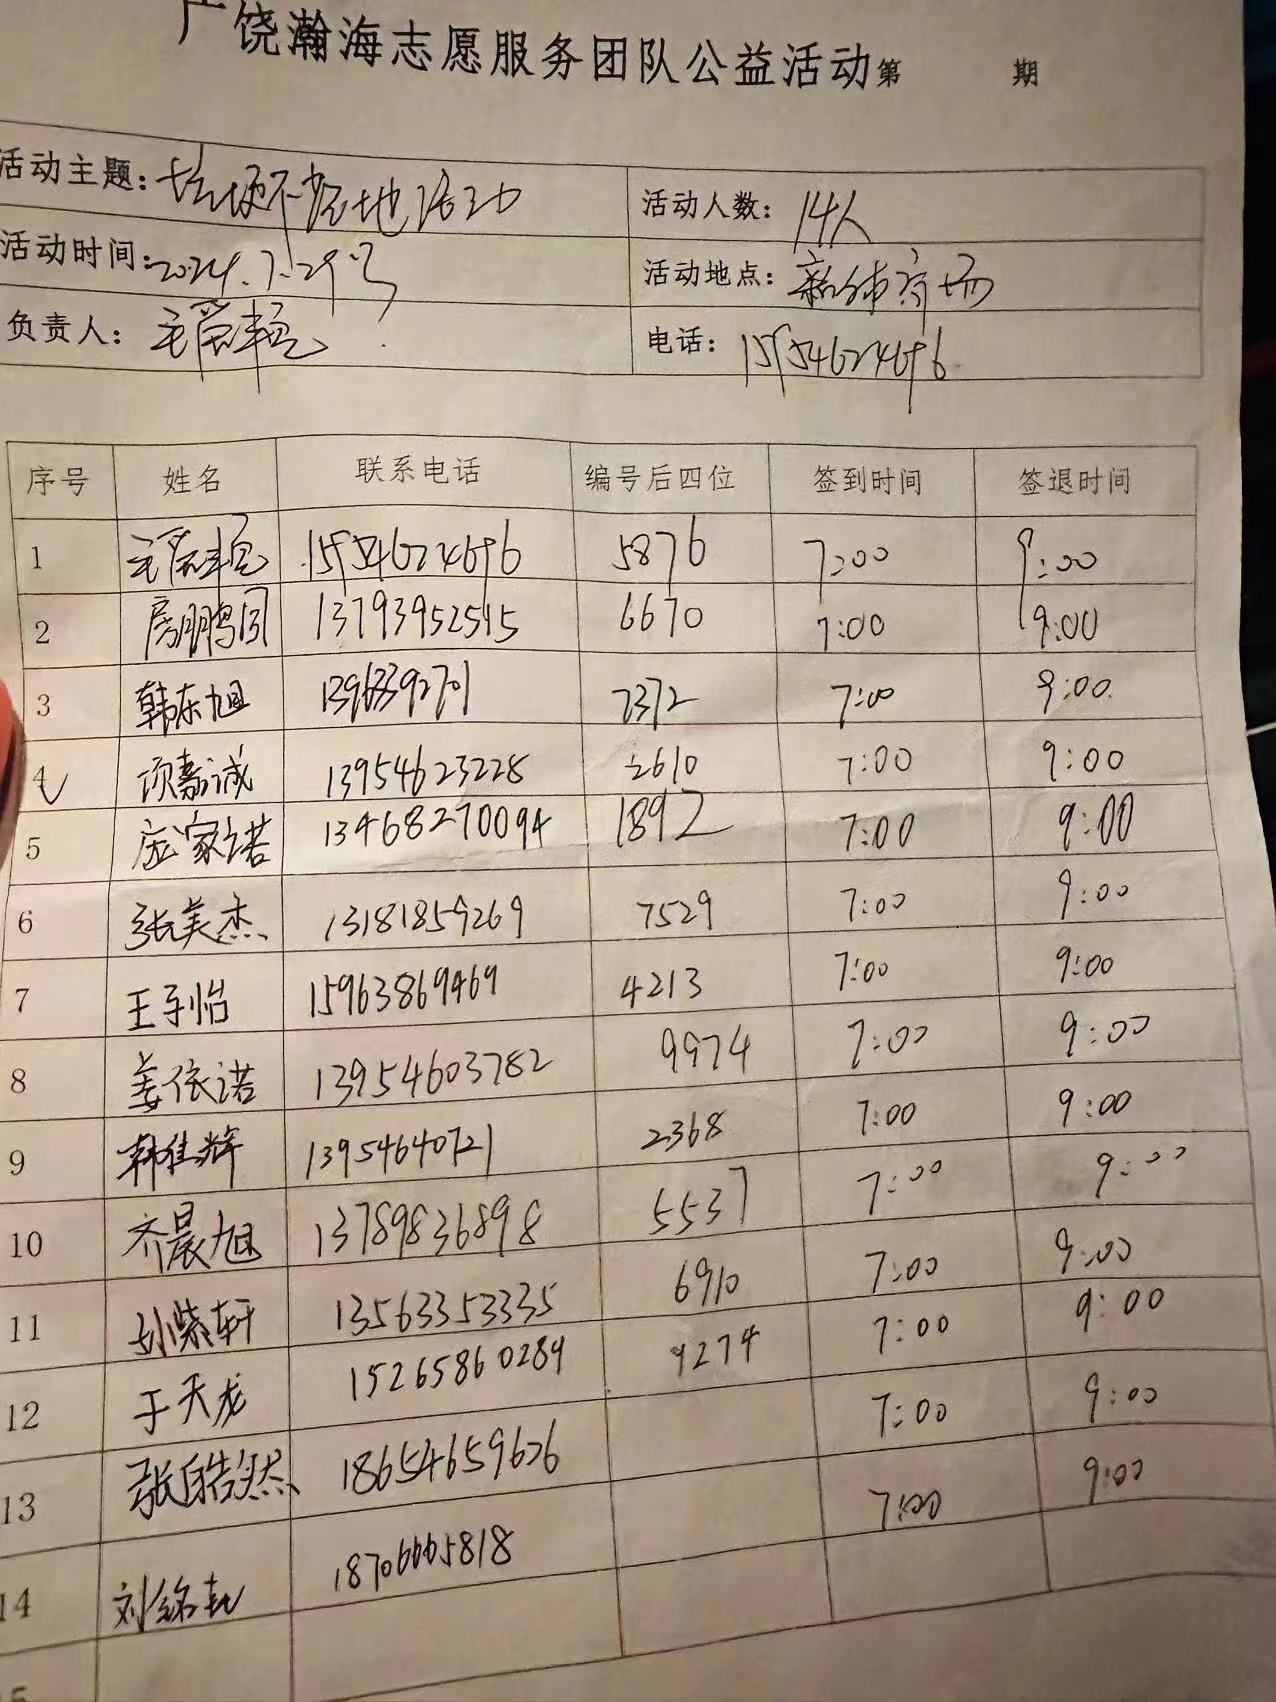 广饶瀚海志愿服务团队公益活动第 期
活动主题：垃圾不落地活动 活动人数：14人
活动时间：2024.7.29号 活动地点：新体育场
负责人： 电话：15954624696
序号 姓名 联系电话 编号后四位 签到时间 签退时间
1 15954624696 5876 7:00 9:00
2 房鹏同 13793952515 6670 7:00 9:00
3 韩东旭 13963392701 7372 7:00 9:00
4 项嘉诚 13954623228 2610 7:00 9:00
5 庞家诺 13468270094 1892 7:00 9:00
6 张美杰 13181859269 7529 7:00 9:00
7 王子怡 15963869469 4213 7:00 9:00
8 姜依诺 13954603782 9974 7:00 9:00
9 韩佳辉 13954640721 2368 7:00 9:00
10 齐晨旭 13789836898 5537 7:00 9:00
11 紫轩 13563353335 6910 7:00 9:00
12 于天龙 15265860289 9274 7:00 9:00
13 张皓然 18654659626 7:00 9:00
14 刘 18706665818 7:00 9:00
15